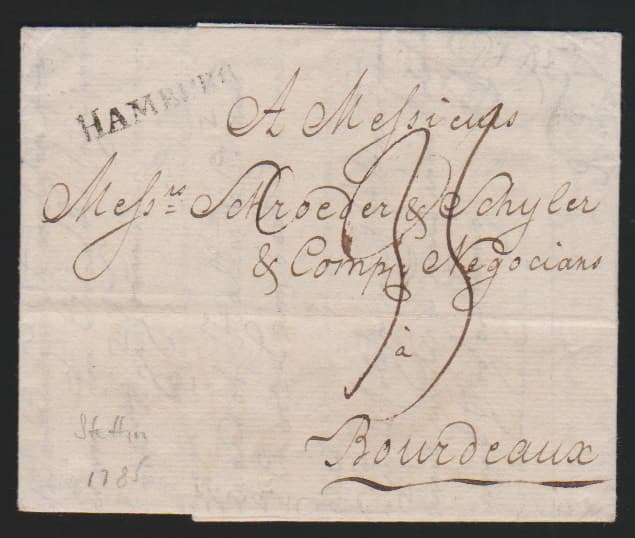 HAMBURG
A Messieurs
Mess.rs Schroeder & Schyler
& Comp. Negocians
33
à
Bourdeaux
Stettin
1785